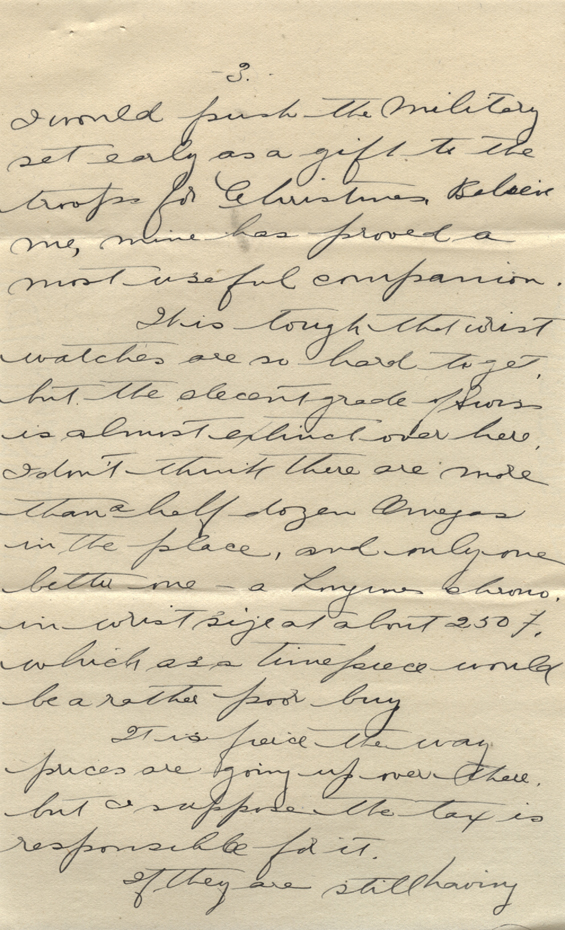 -3.-
I would push the Military
set early as a gift to the
troops for Christmas. Believe
me, mine has proved a
most useful companion.
It is tough that wrist
watches are so hard to get,
but the decent grade of Swiss
is almost extinct over here.
I don't think there are more
than a half dozen Omegas
in the place, and only one
better one - a Longines chrono.
in wrist size at about 250
which as a timepiece would
be a rather poor buy
It is fierce the way
prices are going up over there.
but I suppose the tax is
responsible for it.
If they are still having